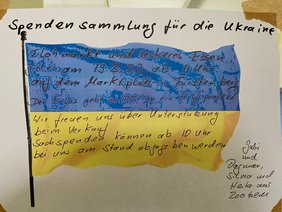 Spendensammlung für die Ukraine
Flohmarkt und leckeres Essen
am 19.3. ab 11 Uhr
auf dem Marktplatz in Fürstenberg
Der Erlös geht
Wir freuen uns über Unterstützung
beim Verkauf
Sachspenden können ab 10 Uhr
bei uns am Stand abgegeben werden
Gabi
und
Dagmar,
Silvia und
Heike aus
Zootzen